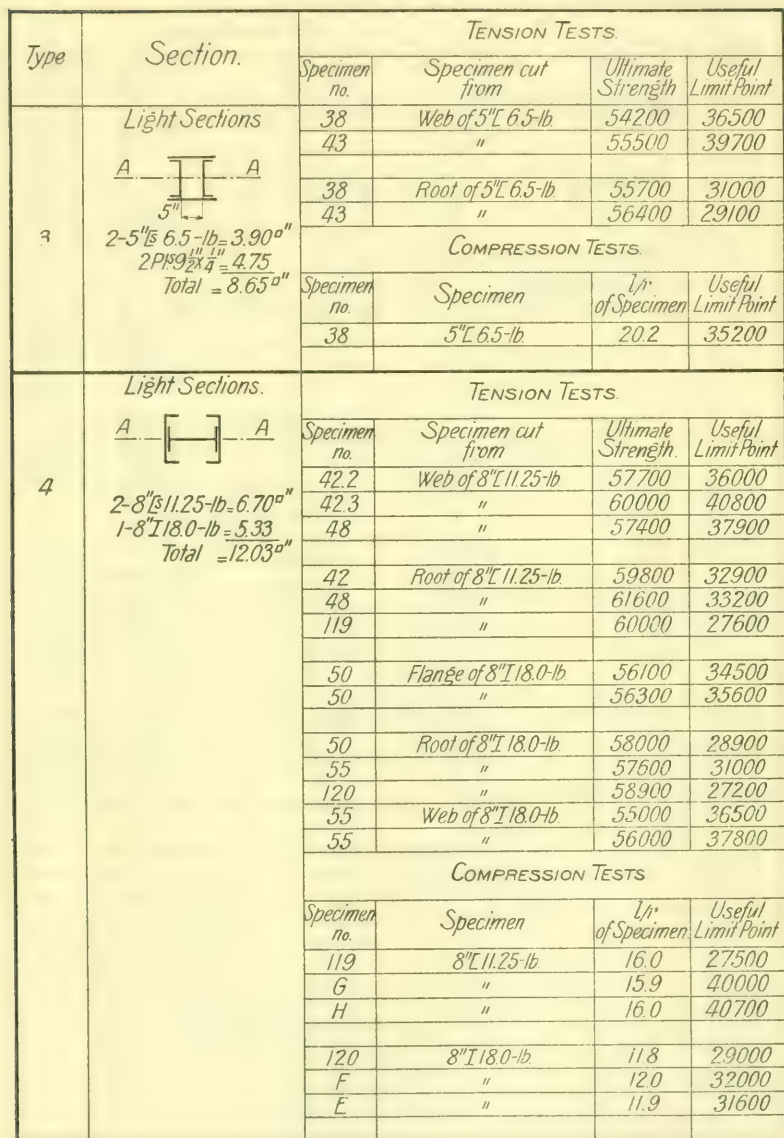 Type Section. TENSION TESTS.
Specimen no. Specimen cut from Ultimate Strength Useful Limit Point
3 Light Sections
A A
5"
2-5"[s 6.5-lb=3.90□"
2Pls9½"x¼"=4.75
Total =8.65□"
38 Web of 5"[ 6.5-lb. 54200 36500
43 " 55500 39700
38 Root of 5"[ 6.5-lb. 55700 31000
43 " 56400 29100
COMPRESSION TESTS.
Specimen no. Specimen l/r of Specimen Useful Limit Point
38 5"[ 6.5-lb. 20.2 35200
4 Light Sections.
A A
2-8"[s 11.25-lb=6.70□"
1-8"I 18.0-lb=5.33
Total =12.03□"
TENSION TESTS.
Specimen no. Specimen cut from Ultimate Strength. Useful Limit Point
42.2 Web of 8"[ 11.25-lb 57700 36000
42.3 " 60000 40800
48 " 57400 37900
42 Root of 8"[ 11.25-lb. 59800 32900
48 " 61600 33200
119 " 60000 27600
50 Flange of 8"I 18.0-lb 56100 34500
50 " 56300 35600
50 Root of 8"I 18.0-lb. 58000 28900
55 " 57600 31000
120 " 58900 27200
55 Web of 8"I 18.0-lb. 55000 36500
55 " 56000 37800
COMPRESSION TESTS
Specimen no. Specimen l/r of Specimen Useful Limit Point
119 8"[ 11.25-lb 16.0 27500
G " 15.9 40000
H " 16.0 40700
120 8"I 18.0-lb. 11.8 29000
F " 12.0 32000
E " 11.9 31600